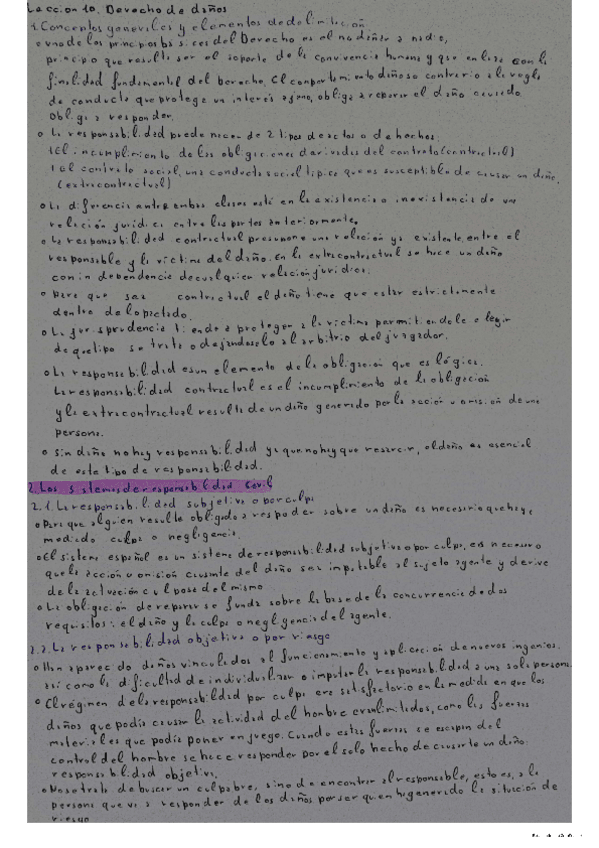 Leccion 10. Derecho de daños
1. Conceptos generales y elementos de delimitación
o uno de los principios básicos del Derecho es el no dañar a nadie,
principio que resulta ser el soporte de la convivencia humana y que enlaza con la
finalidad fundamental del Derecho. El comportamiento dañoso contrario a la regla
de conducta que protege un interés ajeno, obliga a reparar el daño causado.
obliga a responder.
o La responsabilidad puede nacer de 2 tipos de actos o de hechos:
1 El incumplimiento de las obligaciones derivadas del contrato (contractual)
1 El contrato social, una conducta social típica que es susceptible de causar un daño.
(extracontractual)
o La diferencia entre ambas clases está en la existencia o inexistencia de una
relación jurídica entre las partes anteriormente.
o La responsabilidad contractual presupone una relación ya existente entre el
responsable y la víctima del daño. en la extracontractual se hace un daño
con independencia de cualquier relación jurídica.
o para que sea contractual el daño tiene que estar estrictamente
dentro de lo pactado.
o La jurisprudencia tiende a proteger a la víctima permitiendole elegir
de que tipo se trata o dejándoselo al arbitrio del juzgador.
o La responsabilidad es un elemento de la obligación que es lógica.
La responsabilidad contractual es el incumplimiento de la obligación
y la extracontractual resulta de un daño generado por la acción u omisión de una
persona.
o sin daño no hay responsabilidad ya que no hay que resarcir, el daño es esencial
de este tipo de responsabilidad.
2. Los sistemas de responsabilidad civil
2.1. La responsabilidad subjetiva o por culpa
o Para que alguien resulte obligado a responder sobre un daño es necesario que haya
mediado culpa o negligencia.
o El sistema español es un sistema de responsabilidad subjetiva o por culpa, es necesario
que la acción u omisión causante del daño sea imputable al sujeto agente y derive
de la actuación culposa del mismo.
o La obligación de reparar se funda sobre la base de la concurrencia de dos
requisitos: el daño y la culpa o negligencia del agente.
2.2. La responsabilidad objetiva o por riesgo
o Han aparecido daños vinculados al funcionamiento y aplicación de nuevos ingenios,
así como la dificultad de individualizar o imputar la responsabilidad a una sola persona.
o El régimen de la responsabilidad por culpa era satisfactorio en la medida en que los
daños que podía causar la actividad del hombre eran limitados, como las fuerzas
materiales que podía poner en juego. Cuando estas fuerzas se escapan del
control del hombre se hace responder por el solo hecho de causarle un daño:
responsabilidad objetiva.
o No se trata de buscar un culpable, sino de encontrar al responsable, esto es, a la
persona que va a responder de los daños por ser quien ha generado la situación de
riesgo